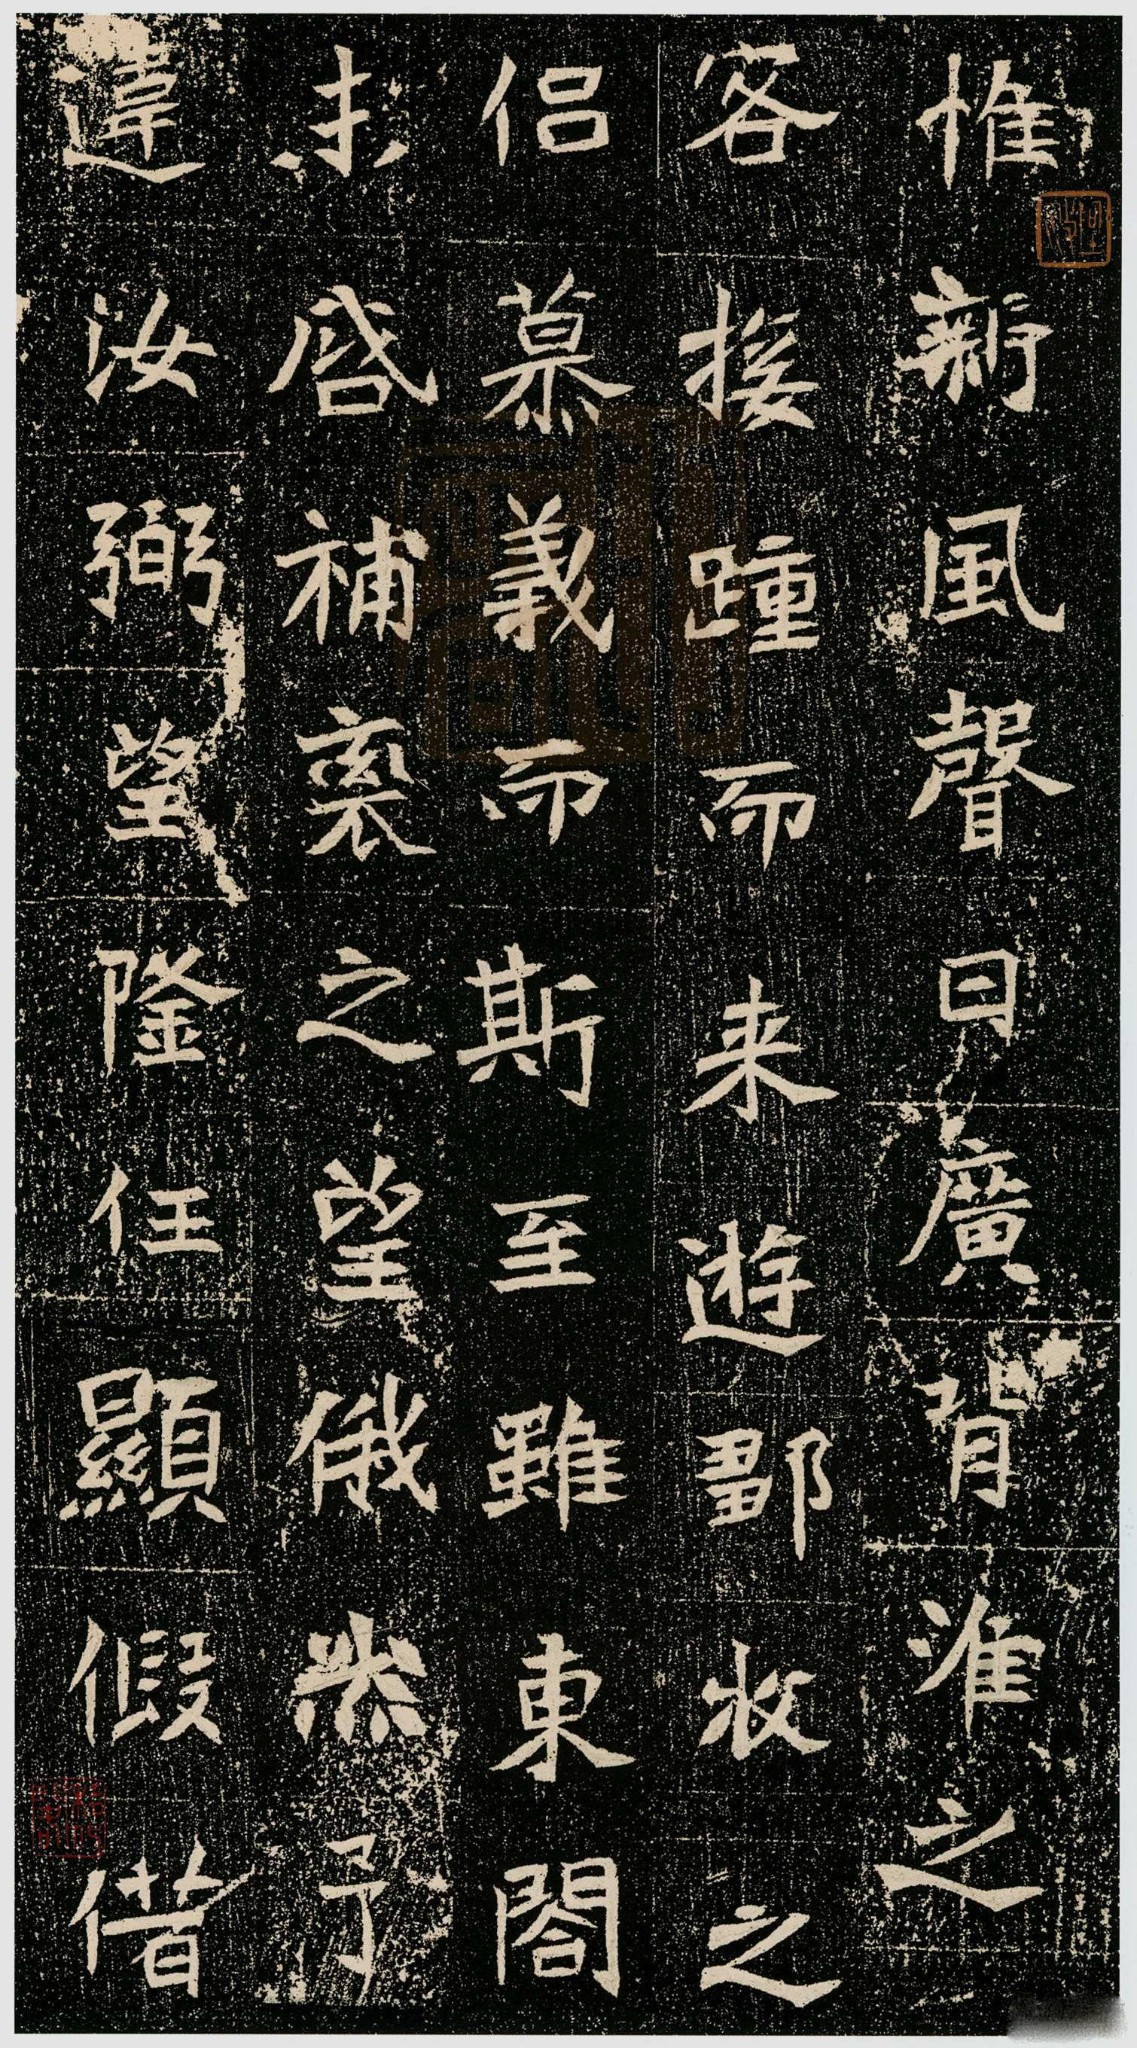 惟新風聲日廣背淮之
客接踵而来遊鄒牧之
侣慕義而斯至雖東閤
未啓補衮之望俄然予
違汝弼望隆任顯假借